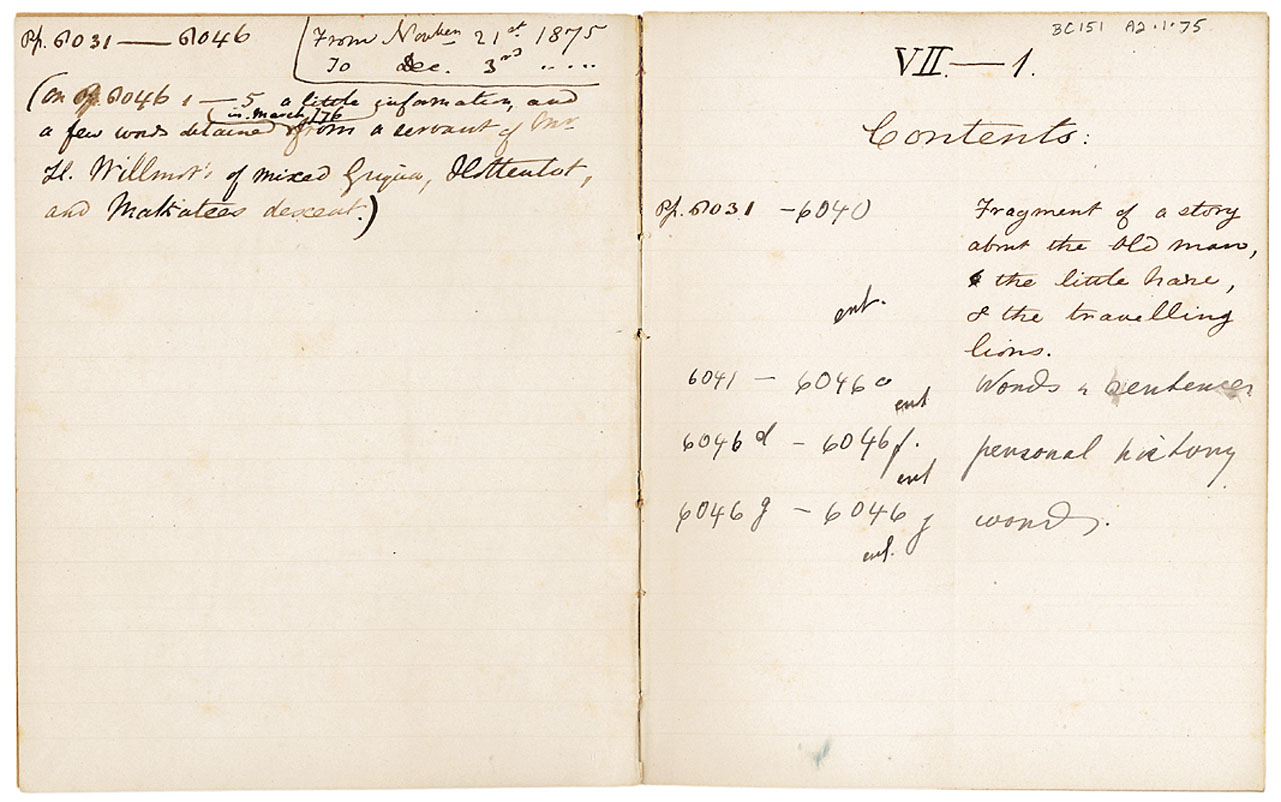 Pp. 6031 — 6046
From Novber 21st 1875
To Dec. 3rd .....
(On pp. 6046, 1 — 5 a little information, and
in March /76
a few words obtained from a servant of Mr
H. Willmot's of mixed Griqua, Hottentot,
and Makatees descent.)
BC151 A2.1.75
VII. — 1.
Contents:
Pp. 6031 — 6040 Fragment of a story
about the old man,
& the little hare,
ent. & the travelling
lions.
6041 — 6046 c ent Words & sentences
6046 d — 6046 f. ent personal history
6046 g — 6046 j words.
ent.